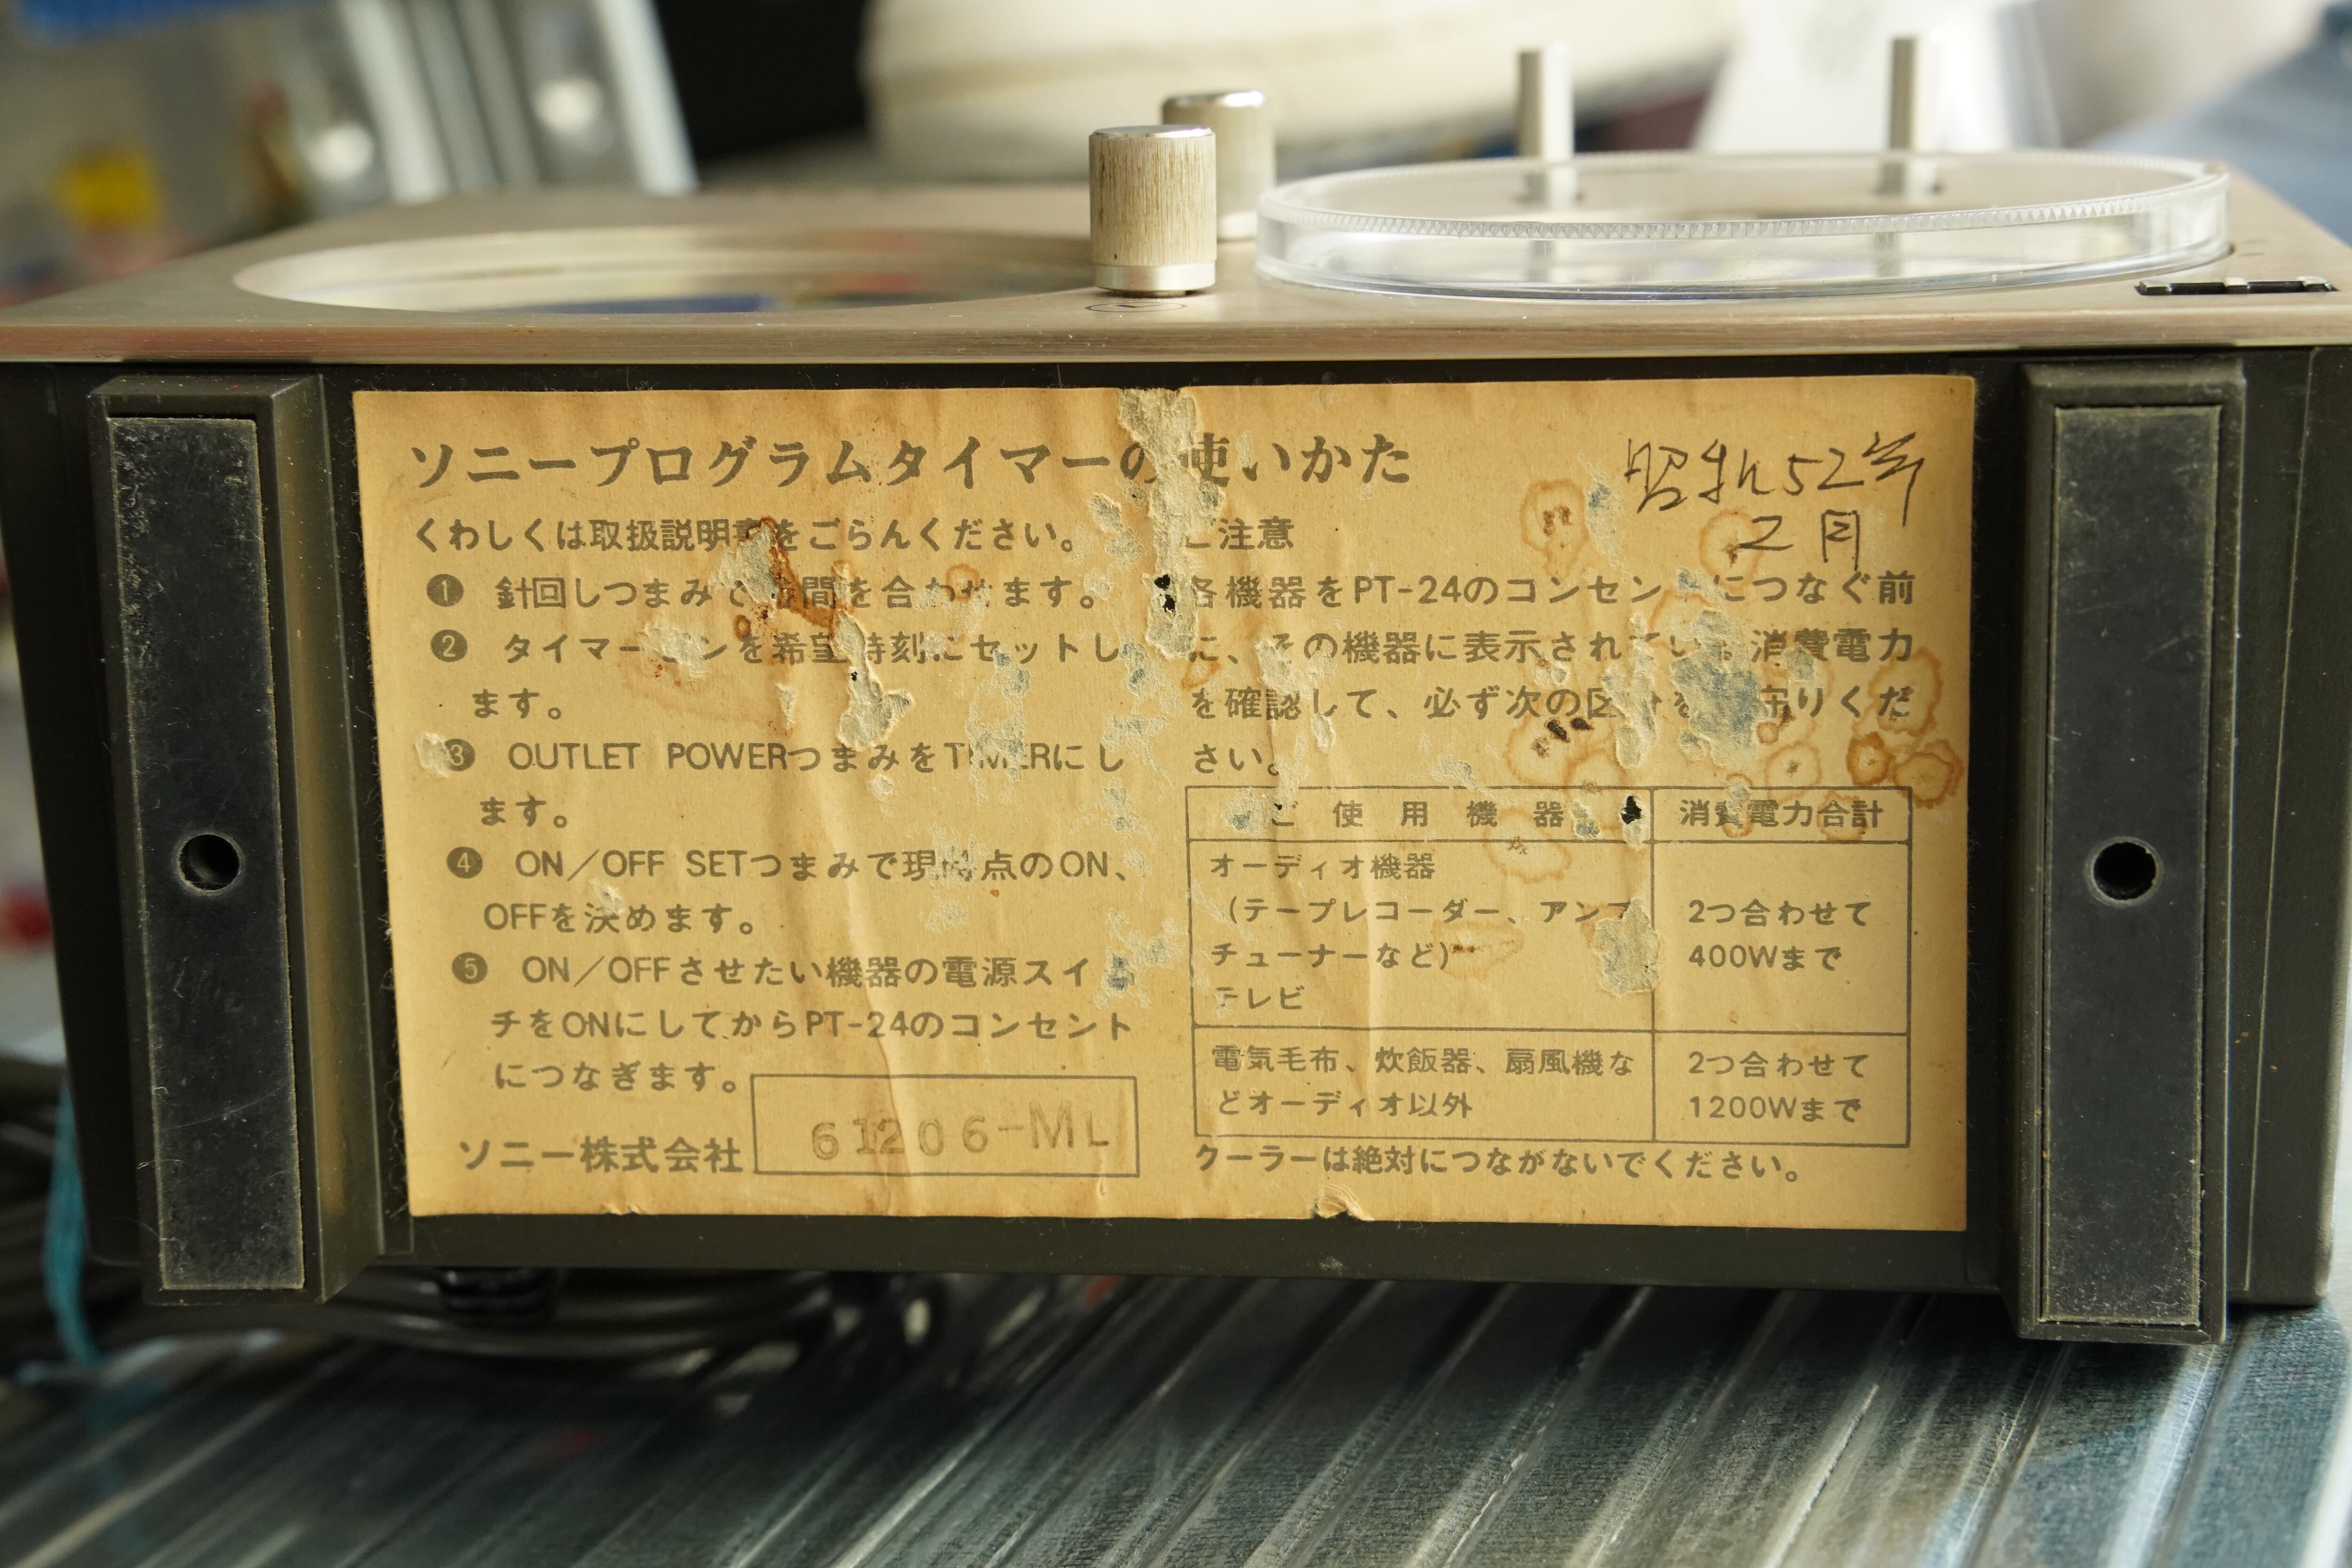 ソニープログラムタイマーの使いかた
昭和52年
2月
くわしくは取扱説明書をごらんください。
❶ 針回しつまみで時間を合わせます。
❷ タイマーピンを希望時刻にセットし
ます。
❸ OUTLET POWERつまみをTIMERにし
ます。
❹ ON／OFF SETつまみで現時点のON、
OFFを決めます。
❺ ON／OFFさせたい機器の電源スイッ
チをONにしてからPT-24のコンセント
につなぎます。
ソニー株式会社
61206-ML
ご注意
各機器をPT-24のコンセントにつなぐ前
に、その機器に表示されている消費電力
を確認して、必ず次の区分をお守りくだ
さい。
ご使用機器 消費電力合計
オーディオ機器
(テープレコーダー、アンプ
チューナーなど)
テレビ
2つ合わせて
400Wまで
電気毛布、炊飯器、扇風機な
どオーディオ以外
2つ合わせて
1200Wまで
クーラーは絶対につながないでください。